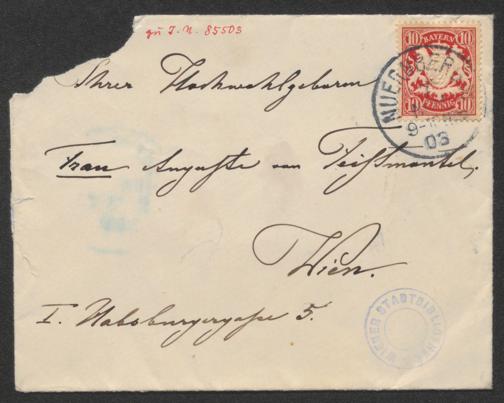 zu I. N. 85503
Ihrer Hochwohlgeboren
Frau Auguste von Teissmantel.
Wien.
I. Habsburgergasse 5.
10 BAYERN 10
10 PFENNIG 10
NUERNBERG
9-
03
WIENER STADTBIBLIOTHEK